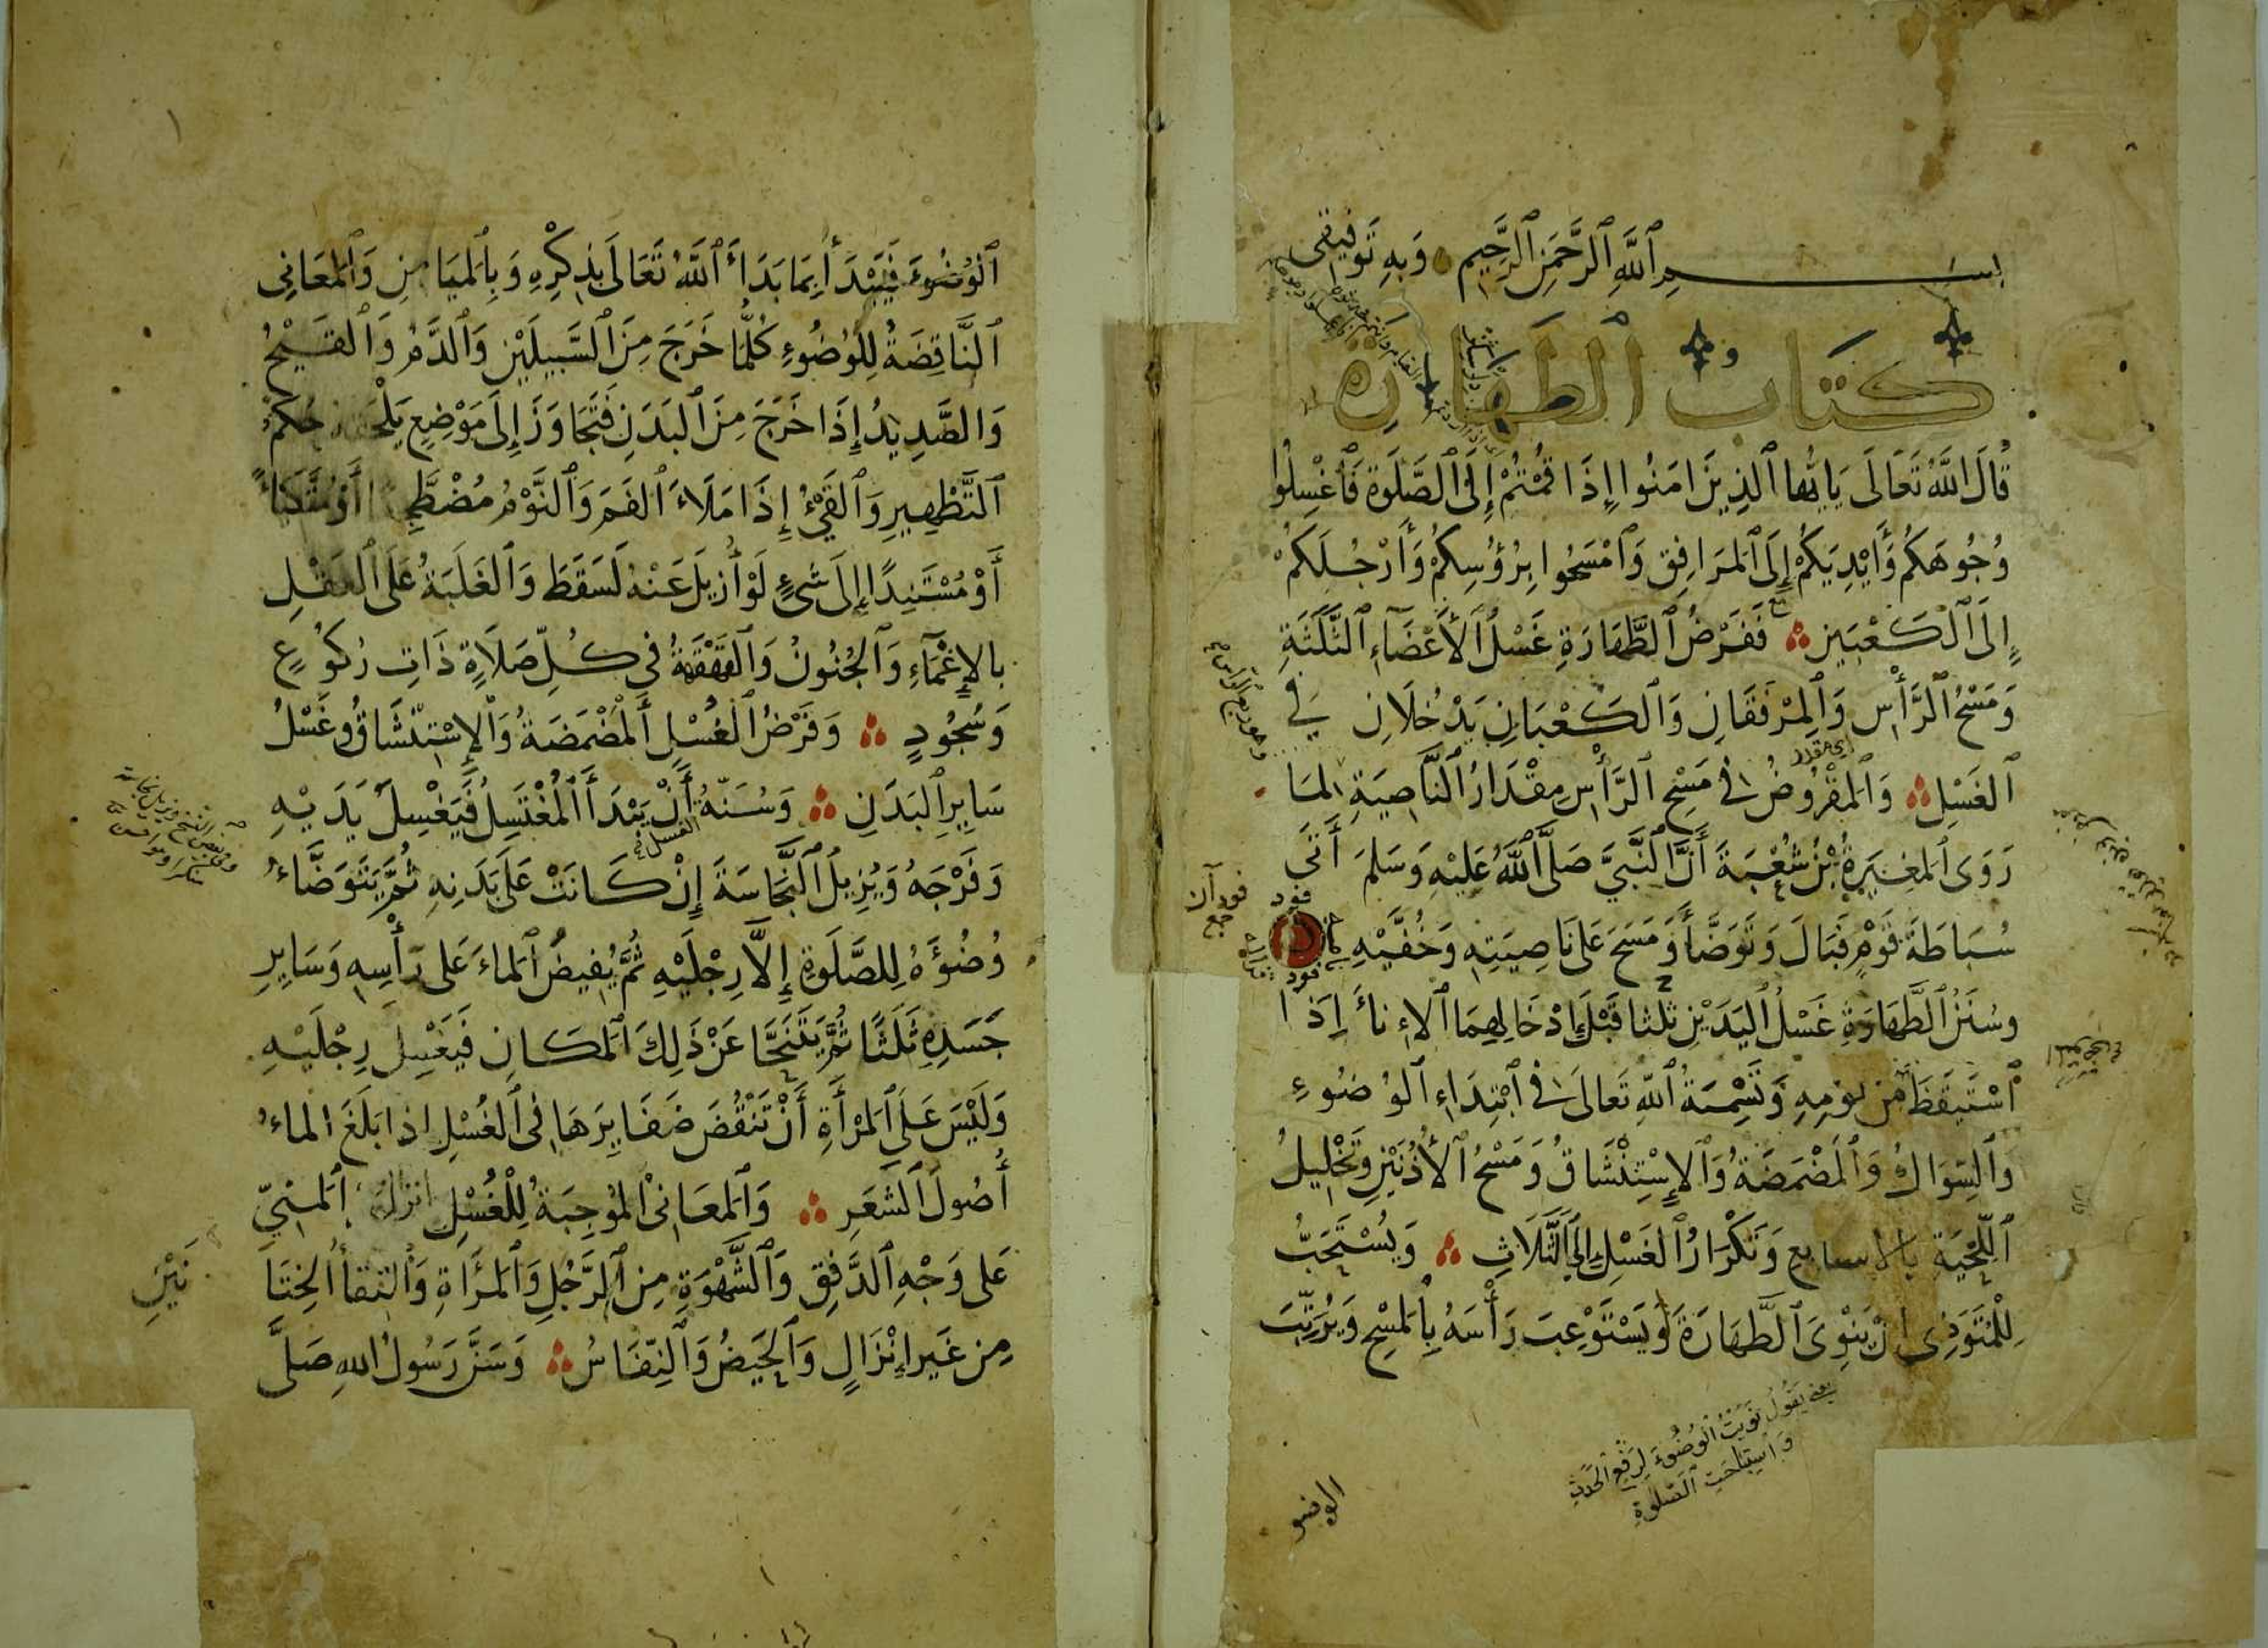 بسم الله الرحمن الرحيم وبه توفيقي
كتاب الطهارة
قَالَ اللَّهُ تَعَالَى يَايُّها ٱلَّذِينَ امَنُوا إِذَا قُمْتُمْ إِلَى ٱلصَّلَوة فَٱغْسِلُوا
وُجُوهَكُمْ وَأَيْدِيَكُمْ إِلَى ٱلمَرَافِقِ وَٱمْسَحُوا بِرُؤُسِكُمْ وَأَرْجُلَكُمْ
إِلَى ٱلْكَعْبَيْنِ فَفَرْضُ ٱلطَّهَارَةِ غَسْلُ ٱلأَعْضَآءِ ٱلثَّلَثَةِ
وَمَسْحُ ٱلرَّأْسِ وَٱلمِرْفَقَانِ وَٱلكَعْبَانِ يَدْخُلَانِ فِي
ٱلغَسْلِ وَٱلمَفْرُوضُ فى مَسْحِ ٱلرَّأْسِ مِقْدَارُ ٱلنَّاصِيَةِ لمَا
رَوَى ٱلمُغِيَرةُ بْنُ شُعْبَةَ أَنَّ ٱلنَّبِيَّ صَلَّى ٱللَّهُ عَلَيْهِ وَسَلمَ أَتَى
سُبَاطَةَ قَوْمٍ فَبَالَ وَتَوَضَّأَ وَمَسَحَ عَلَى نَاصِيَتِهِ وَخُفَّيْهِ
وسُنَنُ ٱلطَّهَارَةِ غَسْلُ ٱليَدَيْنِ ثلثا قَبْلَ إِدْخَالِهِمَا ٱلاءِنَأَ إِذَا
ٱسْتَيقَظَ مِن نومِهِ وَتَسْمِيَةُ ٱللهِ تَعَالَى فى ٱبْتِدَاءِ ٱلوُضُوءِ
وَٱلسِّوَاكُ وَٱلمَضْمَضَةُ وَٱلاِسْتِنْشَاقُ وَمَسْحُ ٱلأُذُنَيْنِ وَتَخْلِيلُ
ٱللِّحْيَةِ بالاصابع وَتَكْرَارُ ٱلغَسْلِ إِلَى ٱلثَّلَاثِ وَيُسْتَحَبُّ
لِلْمُتَوَضِى انْ يَنْوِىَ ٱلطَّهَارَةَ وَيَسْتَوْعِبَ رَأْسَهُ بِٱلمَسْحِ وَيُرَتِّبَ
اى مقدار
يعنى يَقُولُ نَوَيْتُ ٱلوُضُوءَ لِرَفْعِ ٱلحَدَثِ
وَٱستباحت ٱلصّلوةِ
الوضو
ٱلوُضُوءَ فَيَبْدَأَ بِمَا بَدَأَ ٱللَّهُ تَعَالَى بِذِكْرِهِ وَبِٱلمَيَامِنِ وَٱلمَعَانِى
ٱلنَّاقِضَةُ لِلْوُضُوءِ كُلُّمَا خَرَجَ مِنَ ٱلسَّبِيلَيْنِ وَٱلدَّمُ وَٱلقَيْحُ
وَالصَّدِيدُ إِذَا خَرَجَ مِنَ ٱلبَدَنِ فَتَجَاوَزَ إِلَى مَوْضِعٍ يَلْحَقه حُكمُ
ٱلتَّطْهِيرِ وَٱلقَىْءُ إِذَا مَلَأَ ٱلفَمَ وَٱلنَّوْمُ مُضْطَجِعًا أَوْ مُتَّكِئًا
أَوْ مُسْتَنِدًا إِلَى شَىْءٍ لَوْ أُزِيلَ عَنْهُ لَسَقَطَ وَٱلغَلَبَةُ عَلَى ٱلعَقْلِ
بالاِغْمَآءِ وَٱلجُنُونُ وَٱلقَهْقَهَةُ فى كُلِّ صَلَاةٍ ذَاتِ رُكُوعٍ
وَسُجُودٍ وَفَرْضُ ٱلغُسْلِ ٱَلمَضْمَضَةُ وَٱلاِسْتِنْشَاقُ وغَسْلُ
سَايِرِ ٱلبَدَنِ وَسُنَّتُهُ أَنْ يَبْدَأَ ٱلمُغْتَسِلُ فَيَغْسِلَ يَدَيْهِ
وَفَرْجَهُ وَيُزِيلَ ٱلنَّجَاسَةَ إِنْ كَانَتْ عَلَى بَدَنِهِ ثُمَّ يَتَوَضَّاءُ
وُضُؤَهُ لِلصَّلَوةِ إِلَّا رِجْلَيْهِ ثُمَّ يُفِيضُ ٱلماءَ عَلى رَأْسِهِ وَسَايِرِ
جَسَدِهِ ثَلَثًا ثُمَّ يَتَنَحَّا عَنْ ذَلِكَ ٱلمَكانِ فَيَغْسِل رِجْلَيْهِ
وَلَيْسَ عَلَى ٱلمَرْأَةِ أَنْ تَنْقُضَ ضَفَايِرَهَا فى ٱلغُسْلِ اذا بَلَغَ الماءُ
أُصُولَ ٱلشَّعَرِ وَٱلمَعَانىْ ٱلمُوجِبَةُ لِلْغُسْلِ انزالُ ٱلمنىّ
عَلى وَجْهِ ٱلدَّفِقِ وَٱلشَّهْوَةِ مِن ٱلرَّجُلِ وَٱلمَرَأَةِ وَٱلتقأُ ٱلخِتَا
نَيْنِ
مِن غَيرِ إِنْزَالٍ وَٱلحَيضُ وَٱلنِّفَاسُ وَسَنَّ رَسُولُ اللهِ صَلَّى